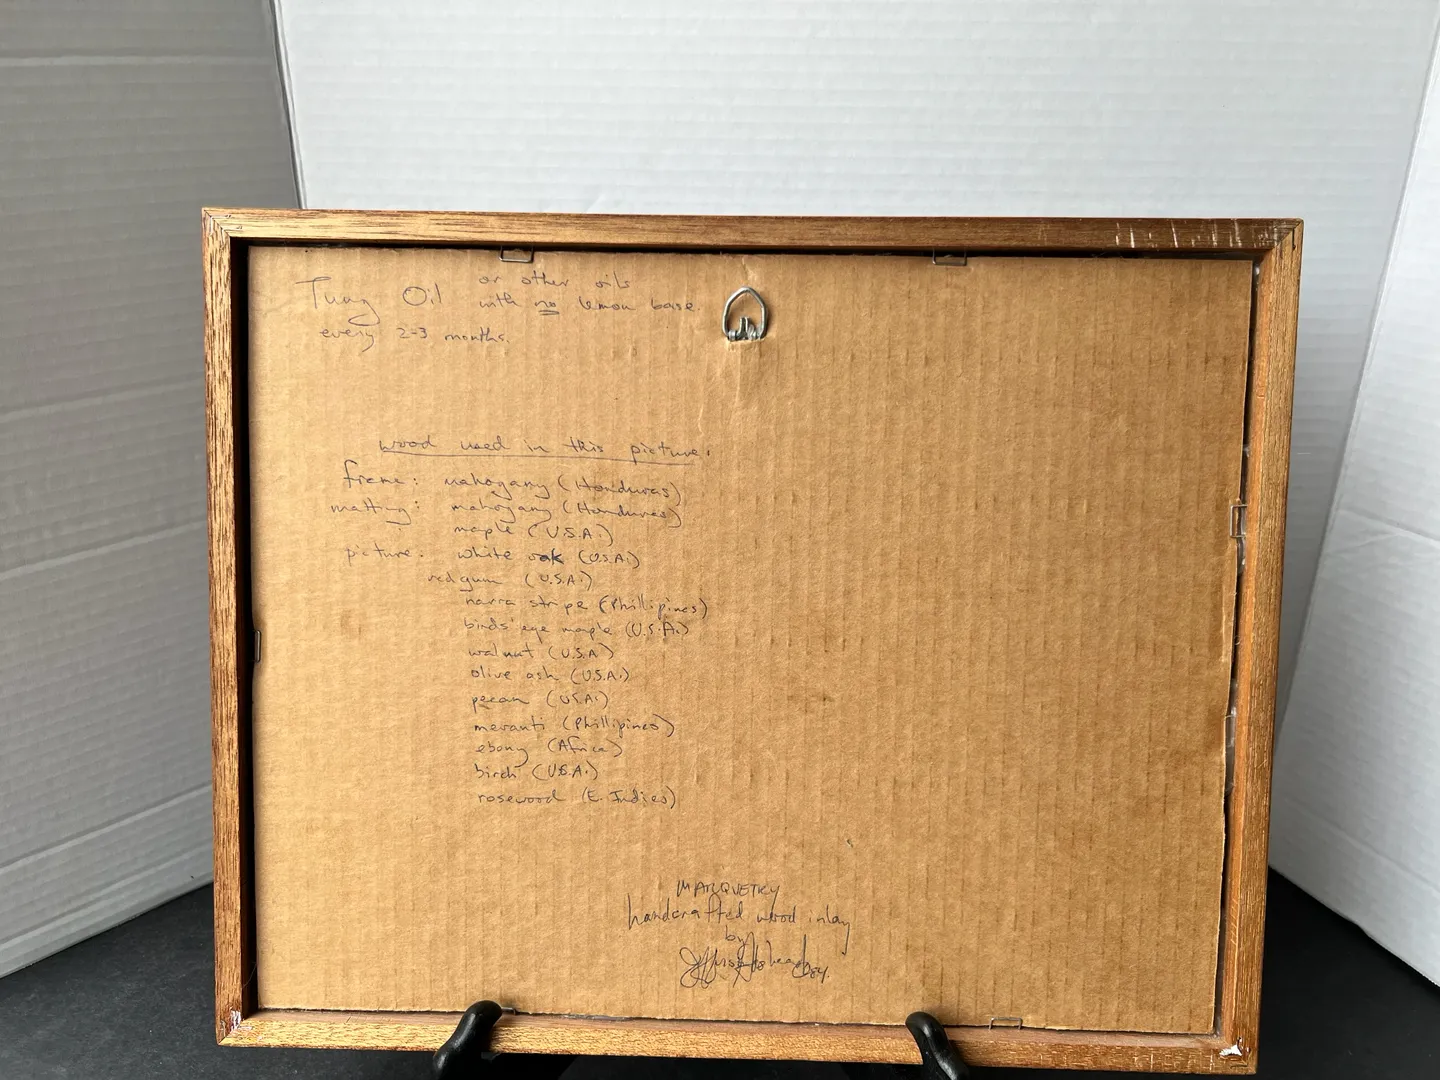 or other oils
Tung Oil with no lemon base
every 2-3 months.
wood used in this picture.
frame: mahogany (Honduras)
matting: mahogany (Honduras)
maple (U.S.A.)
picture: white oak (U.S.A.)
red gum (U.S.A.)
narra stripe (Phillipines)
birds' eye maple (U.S.A.)
walnut (U.S.A)
olive ash (U.S.A.)
pecan (U.S.A.)
meranti (Phillipines)
ebony (Africa)
birch (U.S.A.)
rosewood (E. Indies)
MARQUETRY
handcrafted wood inlay
by